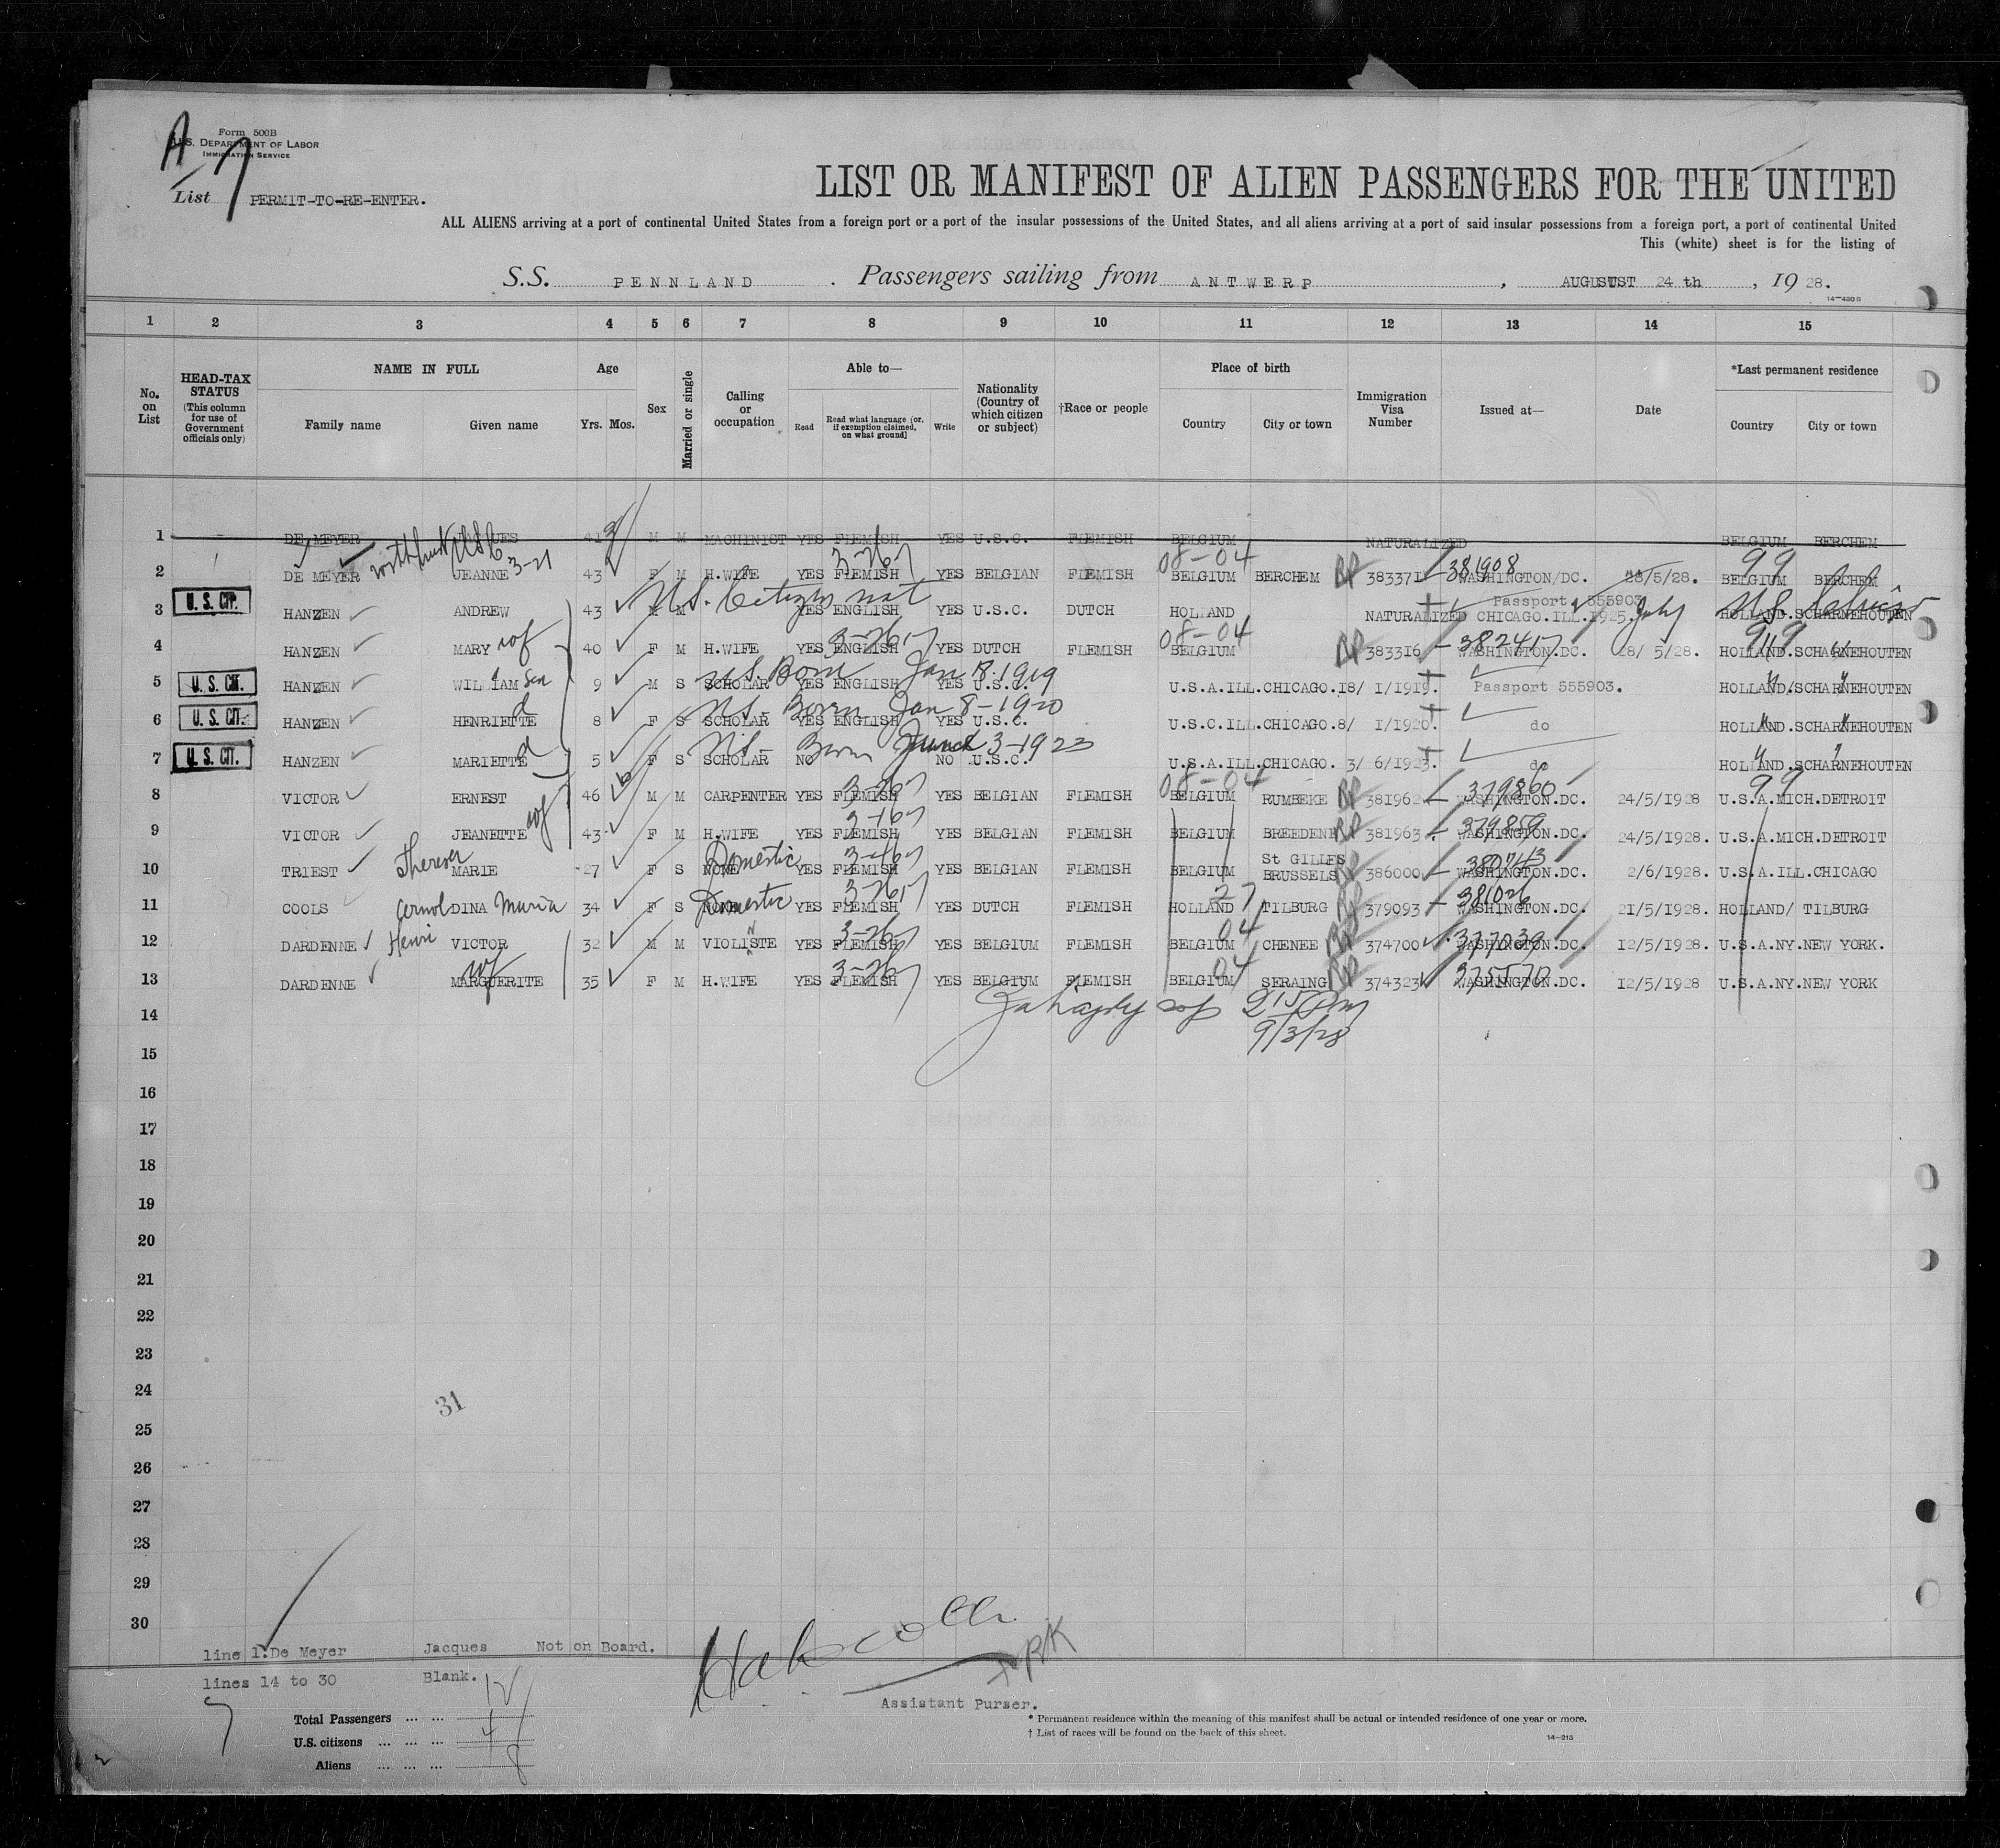 A
Form 500B
U.S. DEPARTMENT OF LABOR
IMMIGRATION SERVICE
List 7 PERMIT-TO-RE-ENTER.
LIST OR MANIFEST OF ALIEN PASSENGERS FOR THE UNITED
ALL ALIENS arriving at a port of continental United States from a foreign port or a port of the insular possessions of the United States, and all aliens arriving at a port of said insular possessions from a foreign port, a port of continental United
This (white) sheet is for the listing of
S.S. PENNLAND . Passengers sailing from ANTWERP , AUGUST 24 th , 19 28.
14-430 B
1 2 3 4 5 6 7 8 9 10 11 12 13 14 15
No. on List
HEAD-TAX STATUS (This column for use of Government officials only)
NAME IN FULL Family name Given name
Age Yrs. Mos.
Sex
Married or single
Calling or occupation
Able to— Read Read what language [or, if exemption claimed, on what ground] Write
Nationality (Country of which citizen or subject)
†Race or people
Place of birth Country City or town
Immigration Visa Number
Issued at—
Date
*Last permanent residence Country City or town
1 DE MEYER JACQUES 41 M M MACHINIST YES FLEMISH YES U.S.C. FLEMISH BELGIUM NATURALIZED BELGIUM BERCHEM
3-26 08-04 381908 99
2 DE MEYER JEANNE 3-21 43 F M H.WIFE YES FLEMISH YES BELGIAN FLEMISH BELGIUM BERCHEM RP 383371 WASHINGTON/DC. 28/5/28. BELGIUM BERCHEM
U.S. CIT. U.S. Citizen nat Passport 555903
3 HANZEN ANDREW 43 M M YES ENGLISH YES U.S.C. DUTCH HOLLAND NATURALIZED CHICAGO.ILL.1925. July HOLLAND.SCHARNEHOUTEN
wf 3-26 08-04 382417 99
4 HANZEN MARY 40 F M H.WIFE YES ENGLISH YES DUTCH FLEMISH BELGIUM RP 383316 WASHINGTON.DC. 28/ 5/28. HOLLAND.SCHARNEHOUTEN
U.S. CIT. son U.S. Born Jan 18-1919
5 HANZEN WILLIAM 9 M S SCHOLAR YES ENGLISH YES U.S.C. U.S.A.ILL.CHICAGO.18/ 1/1919. Passport 555903. HOLLAND.SCHARNEHOUTEN
U.S. CIT. d U.S- Born Jan 8-1920
6 HANZEN HENRIETTE 8 F S SCHOLAR YES ENGLISH YES U.S.C. U.S.C.ILL.CHICAGO.8/ 1/1920. do HOLLAND.SCHARNEHOUTEN
U.S. CIT. d U.S- Born June 3-1923
7 HANZEN MARIETTE 5 F S SCHOLAR NO NO U.S.C. U.S.A.ILL.CHICAGO. 3/ 6/1923. do HOLLAND.SCHARNEHOUTEN
3-26 08-04 379860 99
8 VICTOR ERNEST 46 M M CARPENTER YES FLEMISH YES BELGIAN FLEMISH BELGIUM RUMBEKE RP 381962 WASHINGTON.DC. 24/5/1928 U.S.A.MICH.DETROIT
wf 379859
9 VICTOR JEANETTE 43 F M H.WIFE YES FLEMISH YES BELGIAN FLEMISH BELGIUM BREEDENE RP 381963 WASHINGTON.DC. 24/5/1928. U.S.A.MICH.DETROIT
Domestic 380743
10 TRIEST MARIE 27 F S NONE YES FLEMISH YES BELGIAN FLEMISH BELGIUM St GILLES BRUSSELS 386000 WASHINGTON.DC. 2/6/1928. U.S.A.ILL.CHICAGO
Domestic 3-26 27 381026
11 COOLS DINA Maria 34 F S NONE YES FLEMISH YES DUTCH FLEMISH HOLLAND TILBURG RP 379093 WASHINGTON.DC. 21/5/1928. HOLLAND/ TILBURG
Henri 3-26 04 377039
12 DARDENNE VICTOR 32 M M VIOLISTE YES FLEMISH YES BELGIUM FLEMISH BELGIUM CHENEE RP 374700 WASHINGTON.DC. 12/5/1928. U.S.A.NY.NEW YORK.
wf 3-26 04 375570
13 DARDENNE MARGUERITE 35 F M H.WIFE YES FLEMISH YES BELGIUM FLEMISH BELGIUM SERAING RP 374323 WASHINGTON.DC. 12/5/1928 U.S.A.NY.NEW YORK
14 215 pm
9/3/28
15
16
17
18
19
20
21
22
23
24
31
25
26
27
28
29
30
line 1:De Meyer Jacques Not on Board.
lines 14 to 30 Blank.
Assistant Purser.
Total Passengers ... ... 12
U.S. citizens ... ... ... 4
Aliens ... ... ... 8
* Permanent residence within the meaning of this manifest shall be actual or intended residence of one year or more.
† List of races will be found on the back of this sheet.
14-213